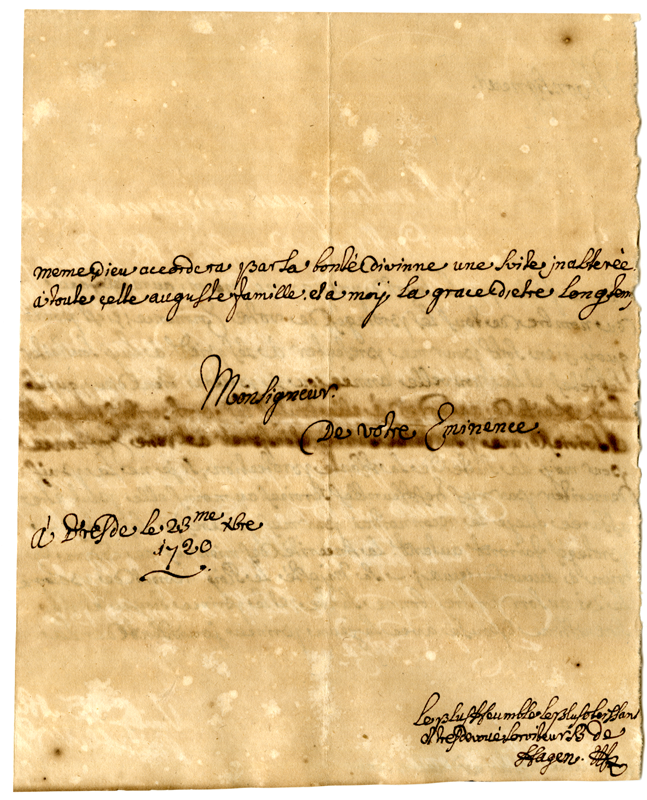 meme Dieu accordera par sa bonté Divinne une suite jnalterée
á toute çette auguste famille, et á moÿ, la grace d'etre Longtem
Monsigneur.
De votre Eminence
á Dresde le 23me xbre
1720
Le plus heumble le plus obeissan
et tres devoué serviteur B de
Hagen.